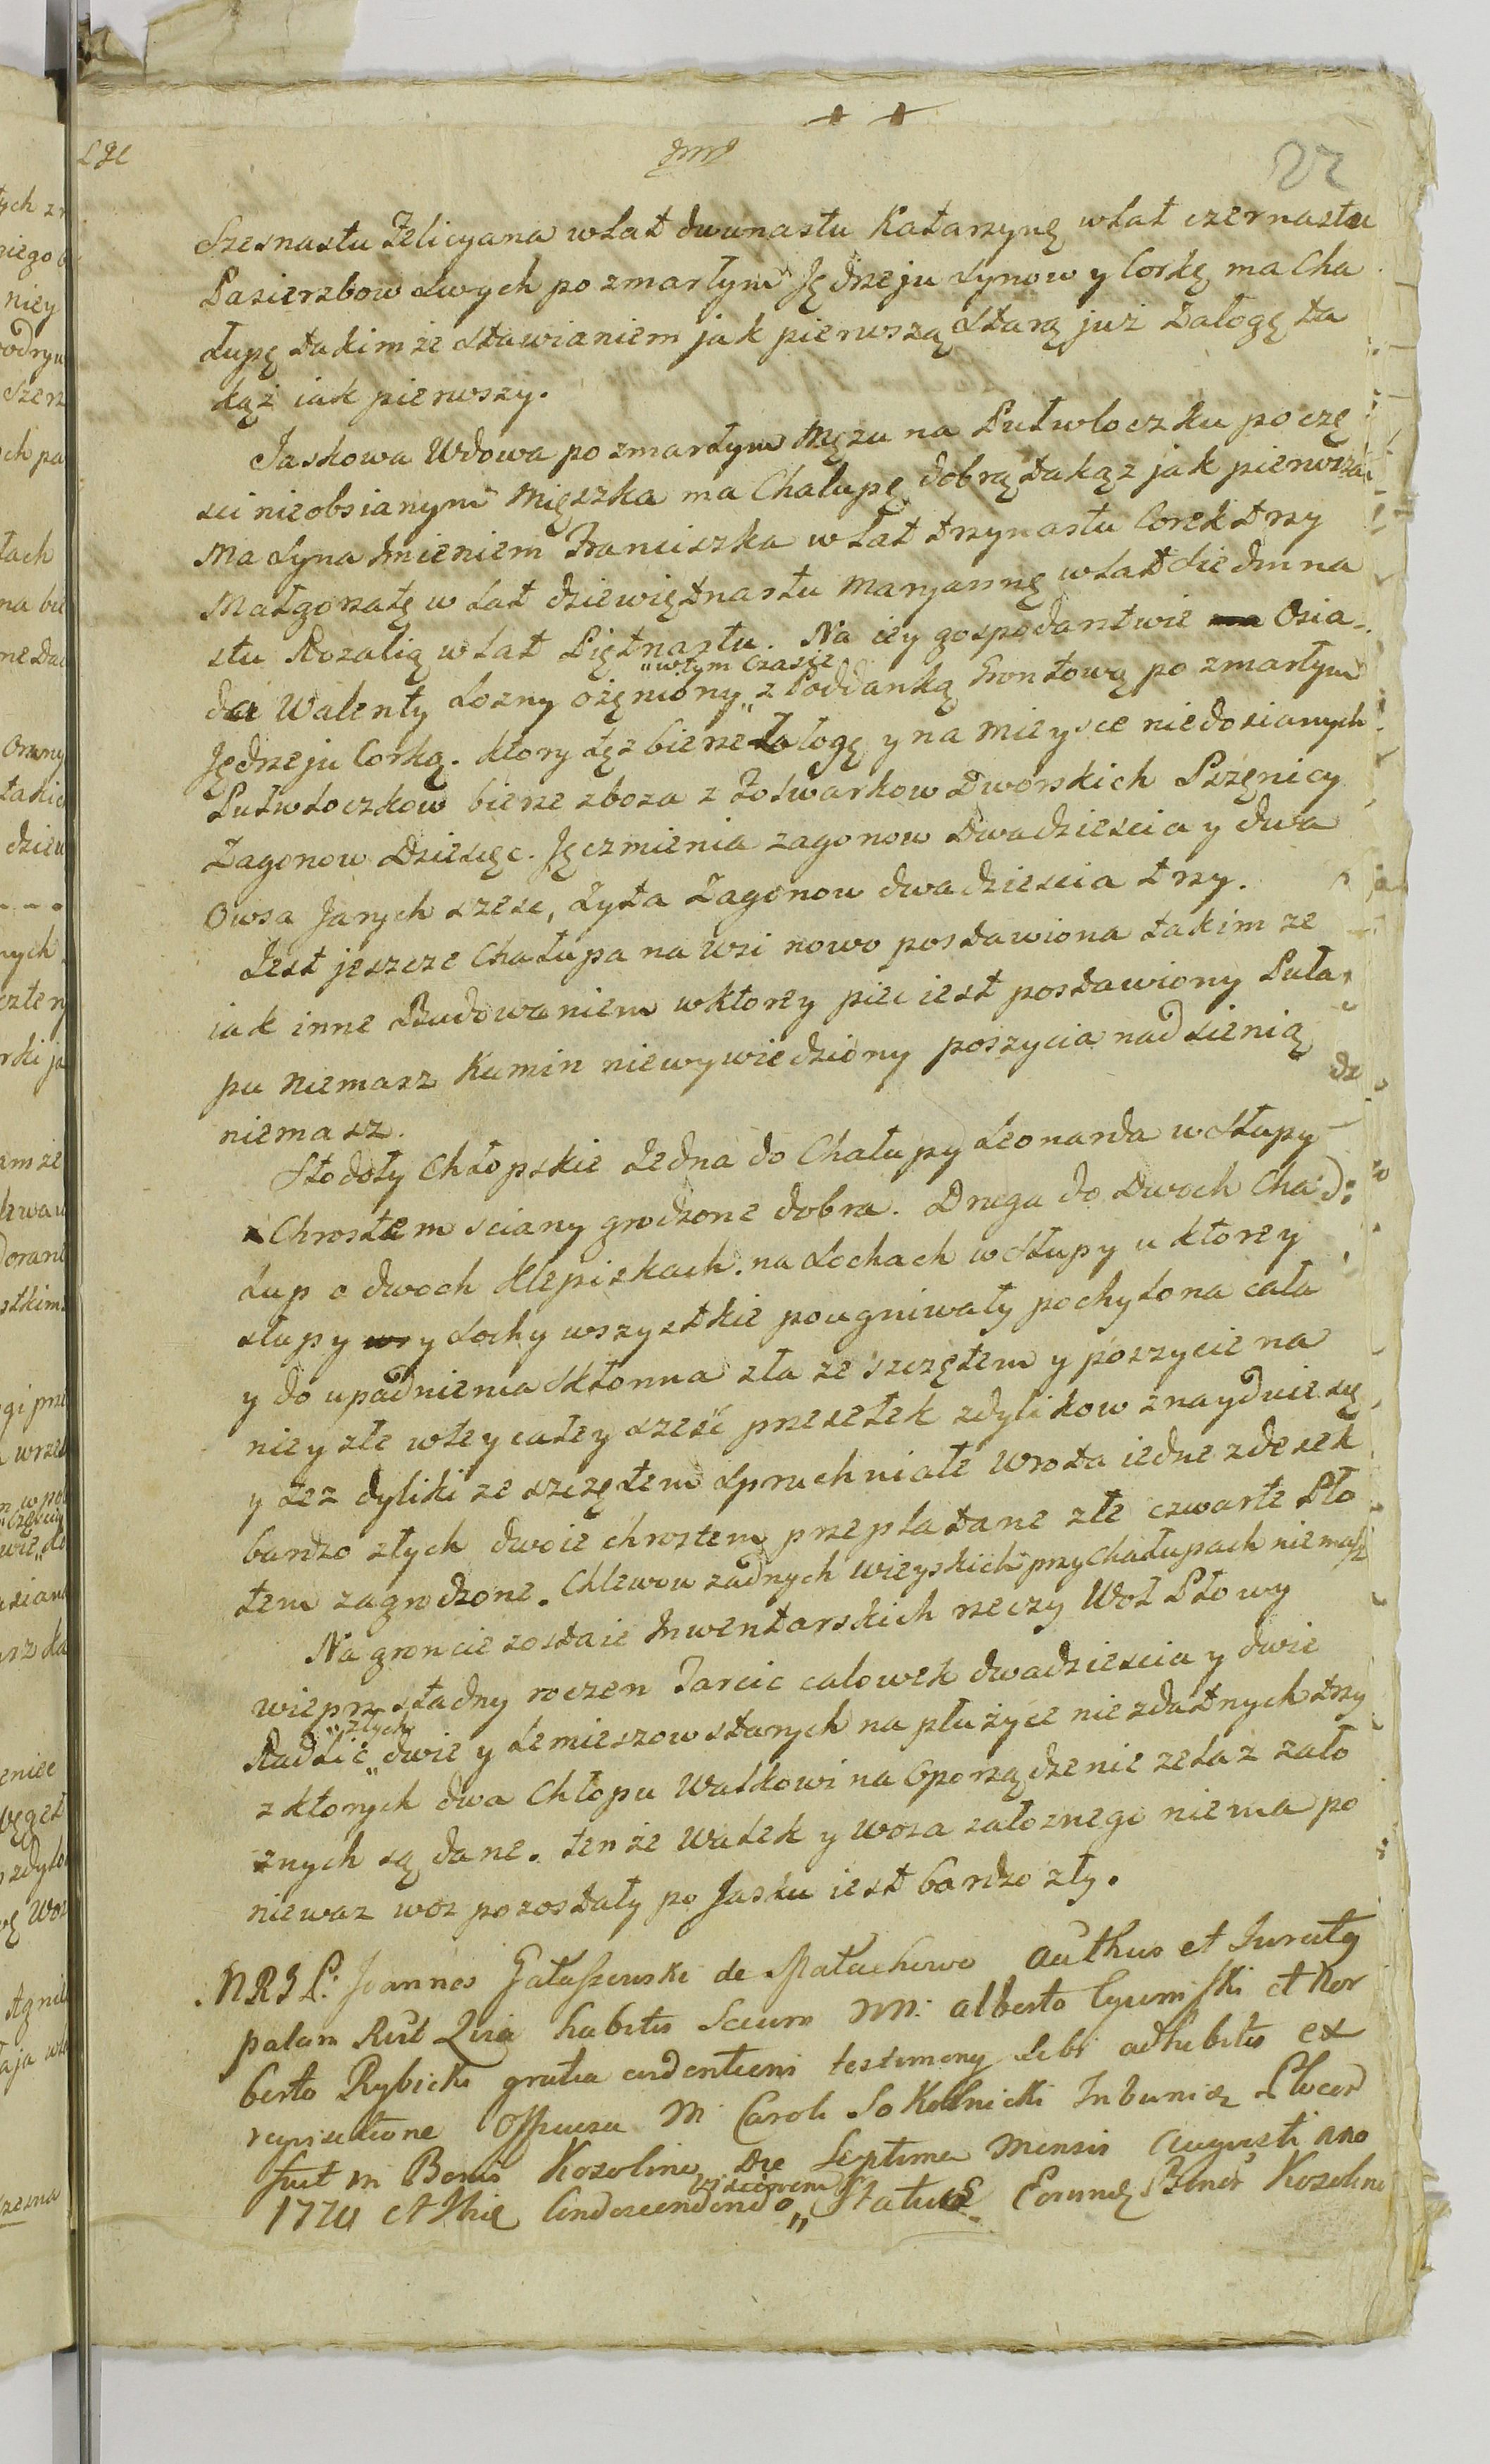 22
Szesnastu Felicyana w Lat dwunastu Katarzynę w Lat czernastu
Pasierzbow dwych po zmarłym Jędrzeju Synow y Corkę ma Cha
łupę takimze stawianiem jak pierwszą Starą już Załogę ta
kąż iak pierwszy.
Jaskowa Wdowa po zmarłym Mężu na Pułwłoczku po czę
sci nieobsianym Mięszka ma Chałupę dobrą takąz jak pierwsza
Ma Syna Imieniem Franciszka w Lat trzynastu Corek trzy
Małgorzatę w Lat dziewiętnastu Maryannę w Lat Siedmna
stu Rozalią w Lat Piętnastu. Na iey gospodarstwie Osia-
da Walenty Lozny ożęniony „w tym Czasie„ z Poddanką Grontową po zmarłym
Jędrzeju Corką. Ktory tęz bierze Załogę y na mieysce niedosianych
Pułwłoczkow bierze zboza z Folwarkow Dworskich Pszęnicy
Zagonow Dziesięc. Jęczmienia zagonow Dwadziescia y dwa
Owsa Jarych szesc, Zyta Zagonow dwadziescia trzy.
Jest jeszcze Chałupa na wsi nowo postawiona takim ze
iak inne Budowaniem w ktorey piec iest postawiony Puła
pu niemasz Kumin niewywiedziony poszycia nad sienią
niemasz.
Stodoły Chłopskie Jedna do Chałupy Leonarda w Słupy
Chrostem sciany grodzone dobra. Druga do Dwoch Cha
łup o dwoch Klepiskach. na Sochach w Słupy u ktorey
słupy y Sochy wszystkie pougniwały pochylona cała
y do upadnienia Skłonna zła ze szczętem y poszycie na
niey złe w tey całey sześć przesełek zdylikow znayduie się
y tez dyliki ze szczętem Spruchniałe Wrota iedne z desek
bardzo złych dwoie chrostem przeplatane złe czwarte Pło
tem zagrodzone. Chlewow zadnych wieyskich przy Chałupach niemasz
Na groncie zostaie Inwentarskich rzeczy Woł Płowy
wieprz stadny roczen Tarcic calowek dwadziescia y dwie
Radlic „złych„ dwie y Lemieszow starych na płużyce niezdatnych trzy
z ktorych dwa Chłopu Walkowi na Oporządzenie zelaz zało
znych są dane. tenże Walek y woza załoznego niema po
niewaz woz pozostały po Jasku iest bardzo zły.
Joannes Gałaszewski de Małachowo Authus et Juratg
palam habitis secum NN: Alberto et Nor
berto Rybicki gratia testimony sibi adhibitis ex
M: Caroli Sokolnicki
fuit in Bonis Kozolino Die Septima Mensis Augusti Ano
Status Bonor Kozolino